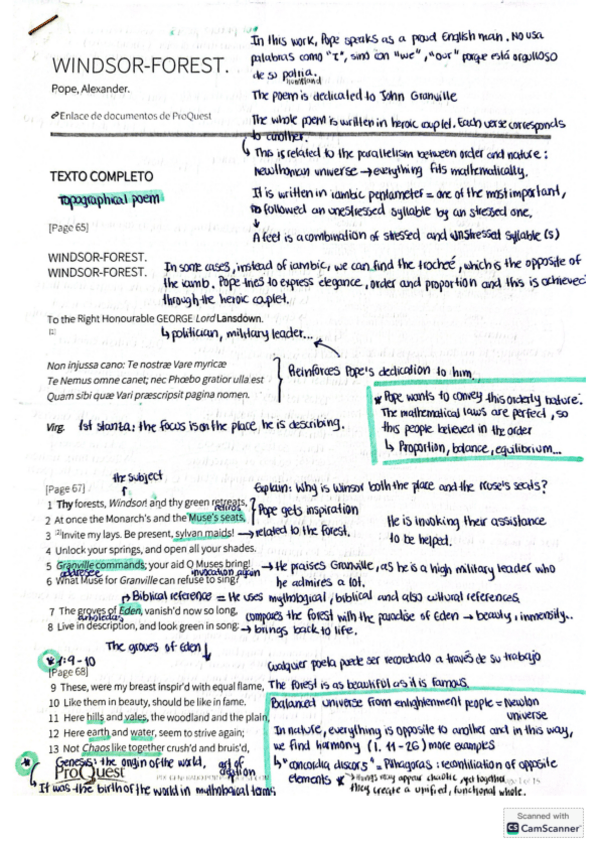 In this work, Pope speaks as a proud English man. No usa
palabras como "I", sino con "we", "our" porque está orgulloso
de su patria.
homeland
WINDSOR-FOREST.
Pope, Alexander.
The poem is dedicated to John Granville
Enlace de documentos de ProQuest
The whole poem is written in heroic couplet. Each verse corresponds
to another.
↳ This is related to the parallelism between order and nature:
newthonian universe → everything fits mathematically.
TEXTO COMPLETO
Topographical poem
It is written in iambic pentameter = one of the most important,
followed an unestressed syllable by an stressed one.
A feet is a combination of stressed and unstressed syllable(s)
[Page 65]
WINDSOR-FOREST.
WINDSOR-FOREST.
In some cases, instead of iambic, we can find the trocheé, which is the opposite of
the iamb. Pope tries to express elegance, order and proportion and this is achieved
through the heroic couplet.
To the Right Honourable GEORGE Lord Lansdown.
[1]
↳ politician, military leader...
Non injussa cano: Te nostræ Vare myricæ
Te Nemus omne canet; nec Phœbo gratior ulla est
Quam sibi quæ Vari præscripsit pagina nomen.
Reinforces Pope's dedication to him.
Virg.
1st stanta: the focus is on the place, he is describing.
* Pope wants to convey this orderly nature.
The mathematical laws are perfect, so
this people believed in the order
↳ Proportion, balance, equilibrium...
the subject
[Page 67]
Explain: Why is winsor both the place and the Muse's seats?
1 Thy forests, Windsor! and thy green retreats,
retiros
2 At once the Monarch's and the Muse's seats,
Pope gets inspiration
3 [2]Invite my lays. Be present, sylvan maids!
→ related to the forest.
He is invoking their assistance
to be helped.
4 Unlock your springs, and open all your shades.
5 Granville commands; your aid O Muses bring!
addressee
invocation again
→ He praises Granville, as he is a high military leader who
he admires a lot.
6 What Muse for Granville can refuse to sing?
↱ Biblical reference = He uses mythological, biblical and also cultural references.
7 The groves of Eden, vanish'd now so long,
arboledas
compares the forest with the paradise of Eden → beauty, inmensity..
8 Live in description, and look green in song:
→ brings back to life.
The groves of eden ↓
* 1: 9-10
[Page 68]
Cualquier poeta puede ser recordado a través de su trabajo
9 These, were my breast inspir'd with equal flame,
The forest is as beautiful as it is famous.
10 Like them in beauty, should be like in fame.
Balanced universe from enlightenment people = Newton
universe
11 Here hills and vales, the woodland and the plain,
12 Here earth and water, seem to strive again;
In nature, everything is opposite to another and in this way,
we find harmony (l. 11-26) more examples
13 Not Chaos like together crush'd and bruis'd,
* Genesis: the origin of the world,
ProQuest
↳ "concordia discors" = Pihagoras: reconciliation of opposite
elements
* things may appear chaotic, yet together
they create a unified, functional whole.
↳ It was the birth of the world in mythological terms
Scanned with
CS CamScanner